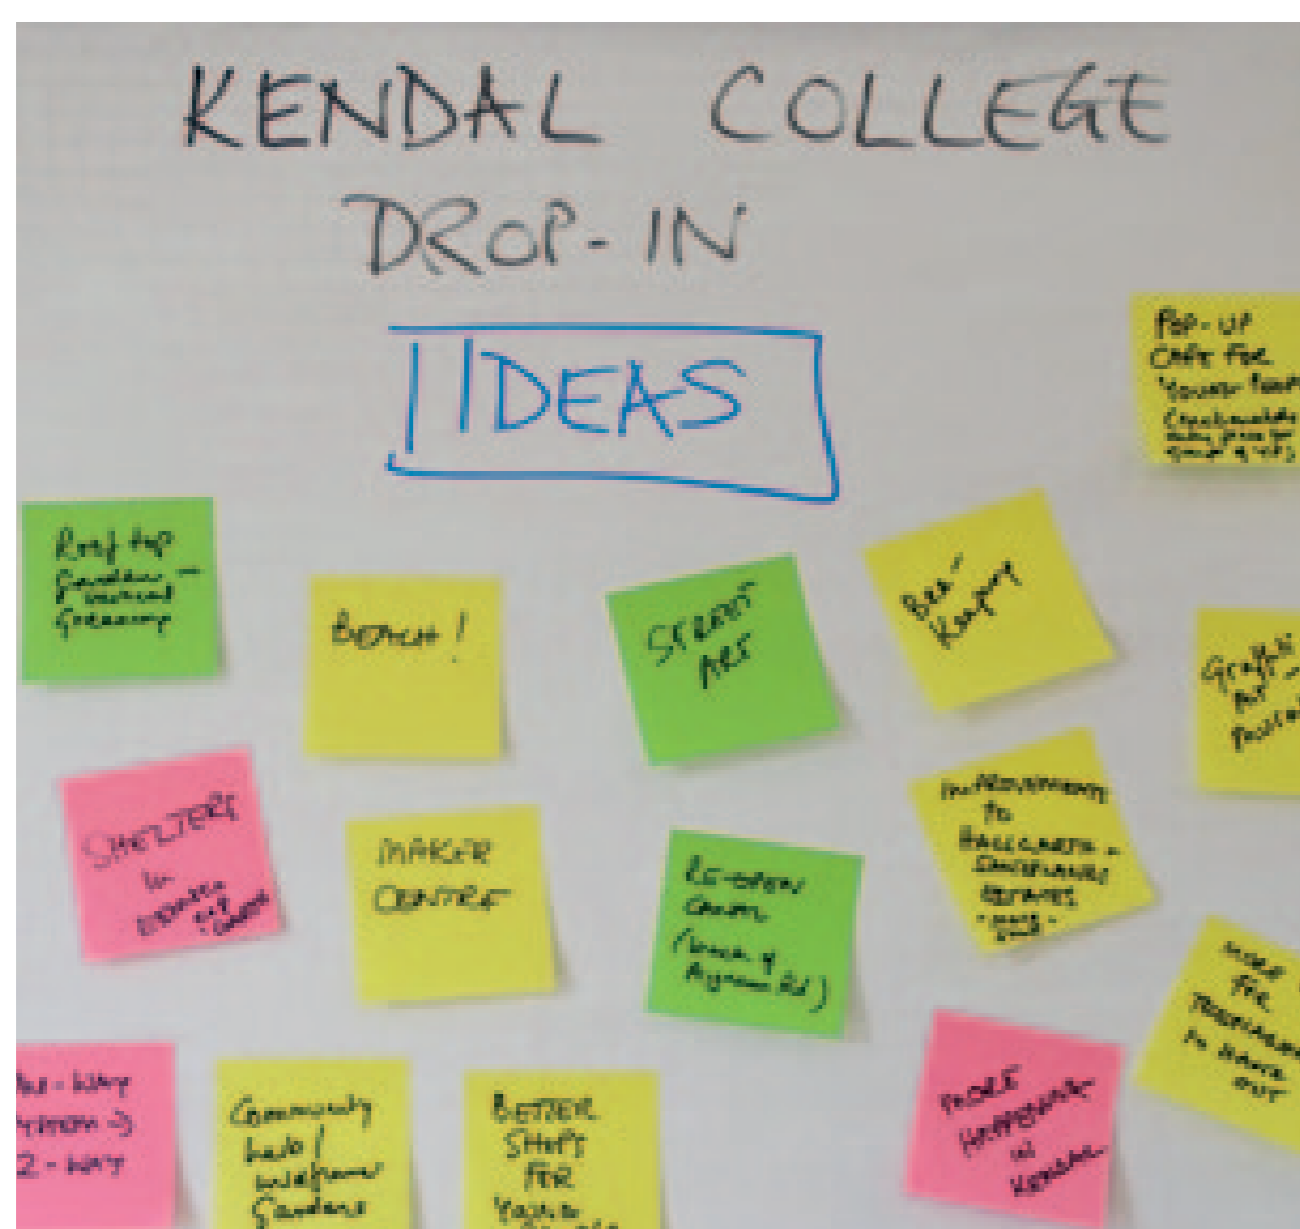 KENDAL COLLEGE
DROP-IN
IDEAS
POP-UP
CAFE FOR
YOUNG
Roof top
Garden -
vertical
Greening
BEACH!
STREET
ART
Bee-
Keeping
Graffiti
SHELTERS
in
MAKER
CENTRE
RE-OPEN
CANAL
(back of
Aynam Rd)
IMPROVEMENTS
TO
HALLGARTH -
SANDYLANDS
ESTATES
MORE
FOR
TEENAGERS
TO HANG
OUT
-WAY
→
2-WAY
Community
hub/
Gardens
BETTER
SHOPS
FOR
YOUNG
MORE
HAPPENING
IN
KENDAL